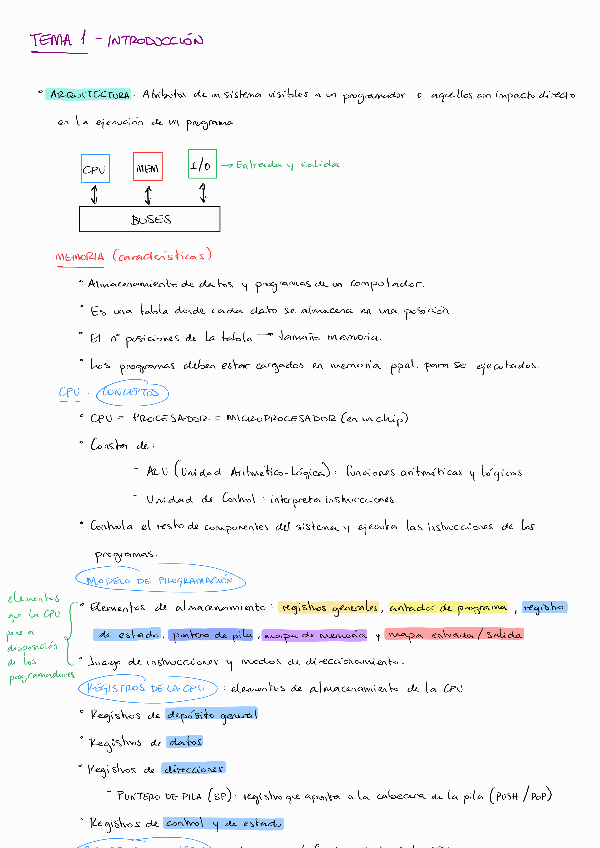 TEMA 1 - INTRODUCCIÓN
° ARQUITECTURA. Atributos de un sistema visibles a un programador o aquellos con impacto directo
en la ejecución de un programa
CPU MEM I/O → Entrada y salida
BUSES
MEMORIA (características)
° Almacenamiento de datos y programas de un computador.
° Es una tabla donde cada dato se almacena en una posición.
° El nº posiciones de la tabla → tamaño memoria.
° Los programas deben estar cargados en memoria ppal. para ser ejecutados.
CPU : CONCEPTOS
° CPU = PROCESADOR = MICROPROCESADOR (en un chip)
° Consta de:
- ALU (Unidad Aritmético-Lógica): funciones aritméticas y lógicas
- Unidad de Control: interpreta instrucciones.
° Controla el resto de componentes del sistema y ejecuta las instrucciones de los
programas.
MODELO DE PROGRAMACIÓN
elementos
que la CPU
pone a
disposición
de los
programadores
° Elementos de almacenamiento: registros generales, contador de programa, registro
de estado, puntero de pila, mapa de memoria y mapa entrada/salida
° Juego de instrucciones y modos de direccionamiento.
REGISTROS DE LA CPU : elementos de almacenamiento de la CPU
° Registros de depósito general
° Registros de datos
° Registros de direcciones
- PUNTERO DE PILA (SP): registro que apunta a la cabecera de la pila (PUSH/POP)
° Registros de control y de estado